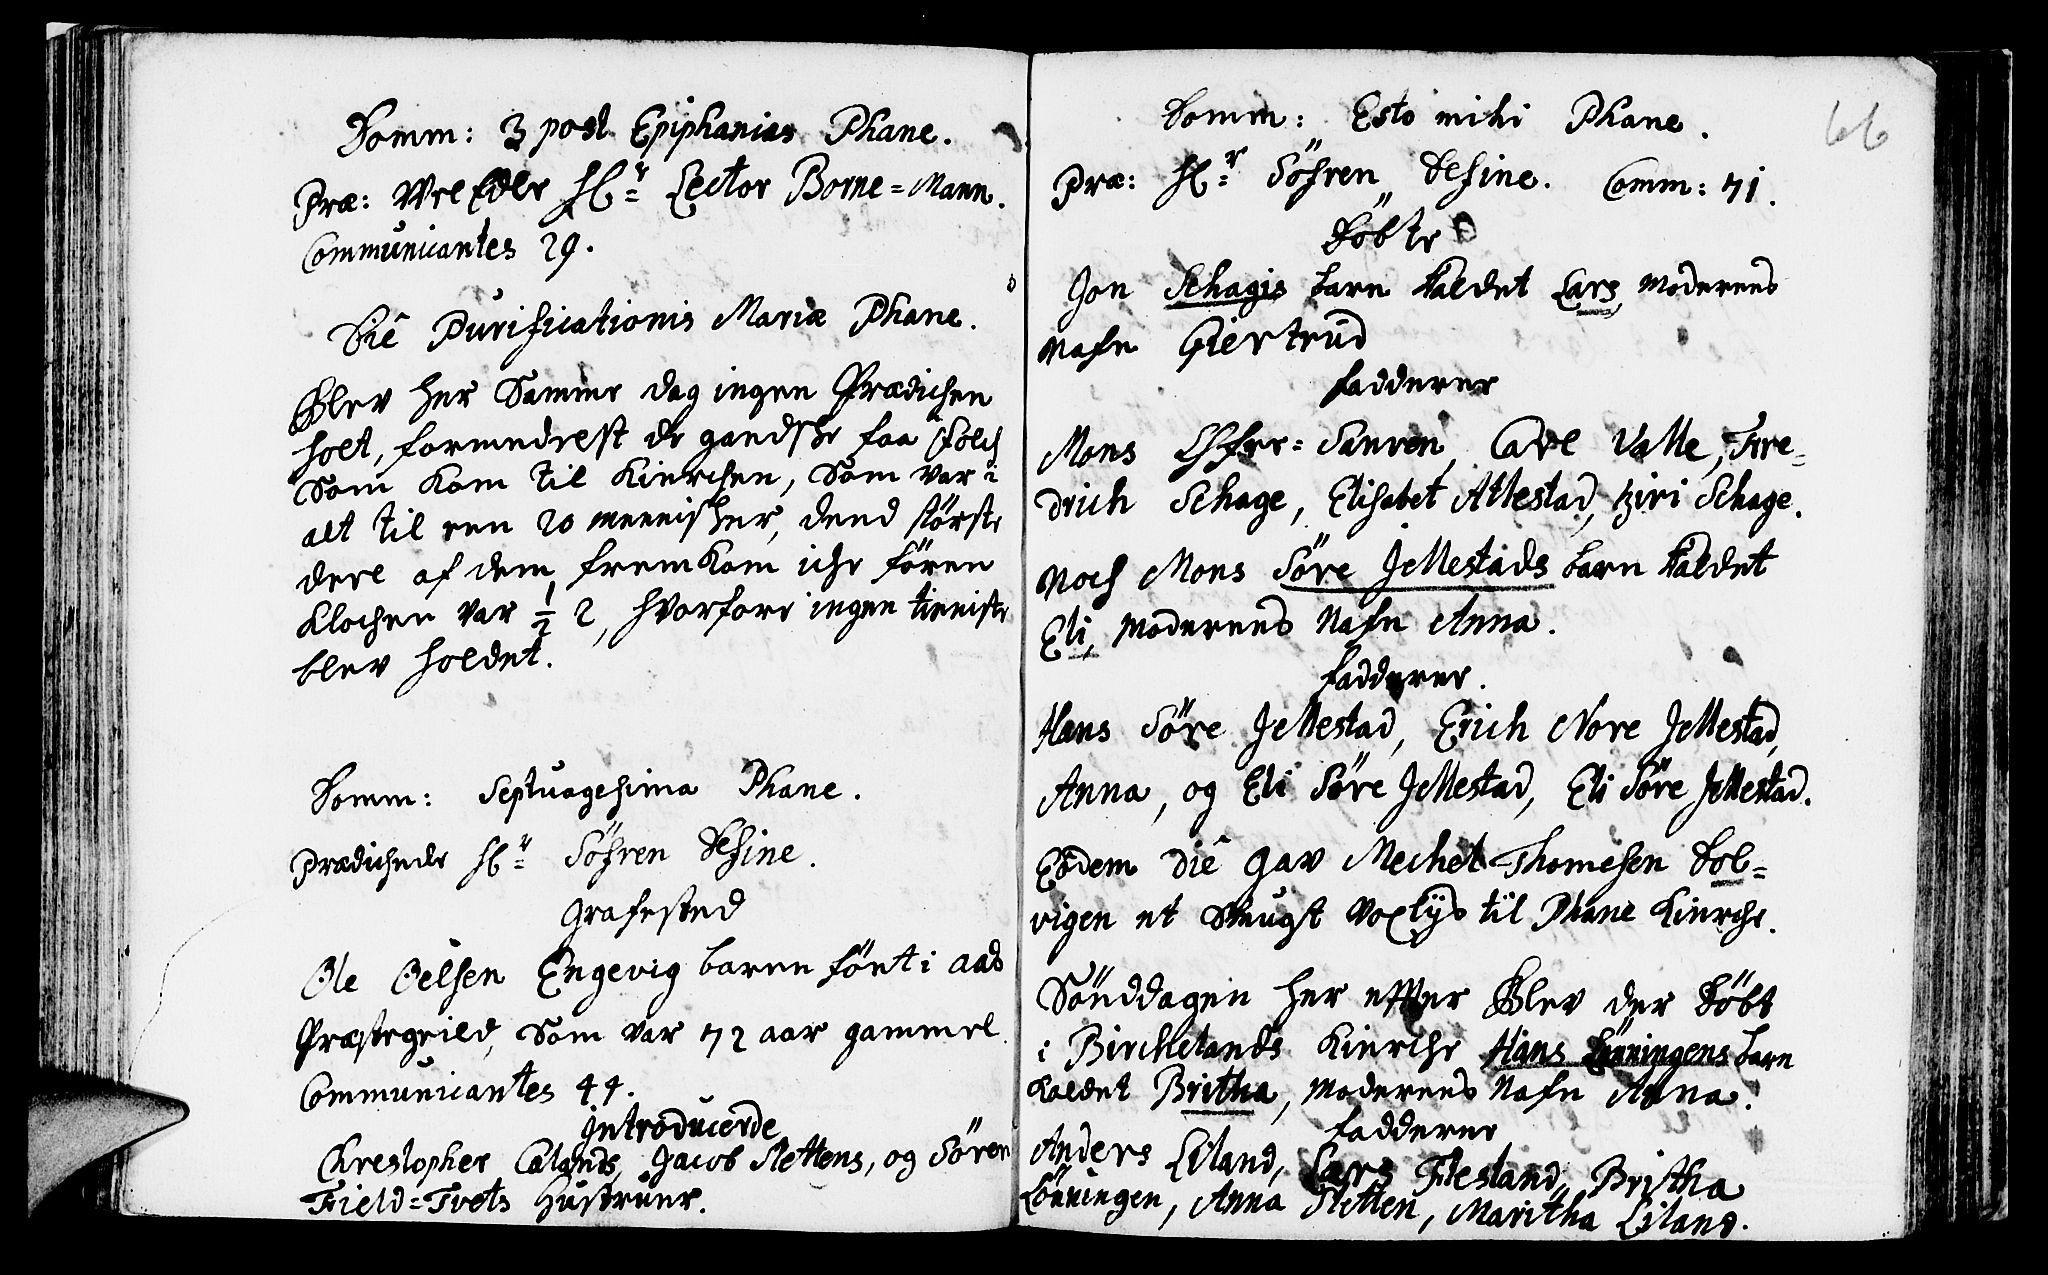 Domm: 3 post Epiphanias Phane.
Præ: WelEdle Hr: Lector Borne=Mann.
Communicantes 29.
Diê Purificationis Mariæ Phane.
Blev her Samme dag ingen Prædichen
holt, formedelst de gandsche faa Folch
Som Kom til Kierchen, Som var i
alt til een 20 mennischer, dend störste
deel af dem fremKom iche fören
Klochen var ½ 2, hvorfore ingen tieniste
blev holdet.
Domm: Septuagesima Phane.
Prædichede Hr: Söfren Desine.
Grafested
Ole Oelsen Engevig baaren fönt i aas
Præstegield, Som var 72 aar gammel.
Communicantes 44.
Introducerde
Chrestopher Calands, Jacob Slettens, og Sören
Field=Tvets Hustruer.
66
Domm: Esto mihi Phane.
Præ: Hr: Söfren Desine. Comm: 71.
Döbte
Jon Schagis barn Kaldet Lars, Moderens
Nafn Giertrud
fadderer
Mons Sanven, Carl Valle, Fre=
drich Schage, Elisabet Attestad, Siri Schage.
Noch Mons Söre Jellestads barn Kaldet
Eli, Moderens Nafn Anna.
fadderer.
Hans Söre Jellestad, Erich Nore Jellestad,
Anna, og Eli Söre Jellestad, Eli Söre Jellestad.
Eodem diê gav Mechel Thomesen Dol=
vigen et Smugt Voxlys til Phane Kierche.
Sönddagen her effter Blev der Döbt
i Birchelands Kierche Hans Lönningens barn
Kaldet Britha, Moderens Nafn Anna.
fadderer
Anders Liland, Lars Flesland, Britha
Lönningen, Anna Sletten, Maritha Liland.